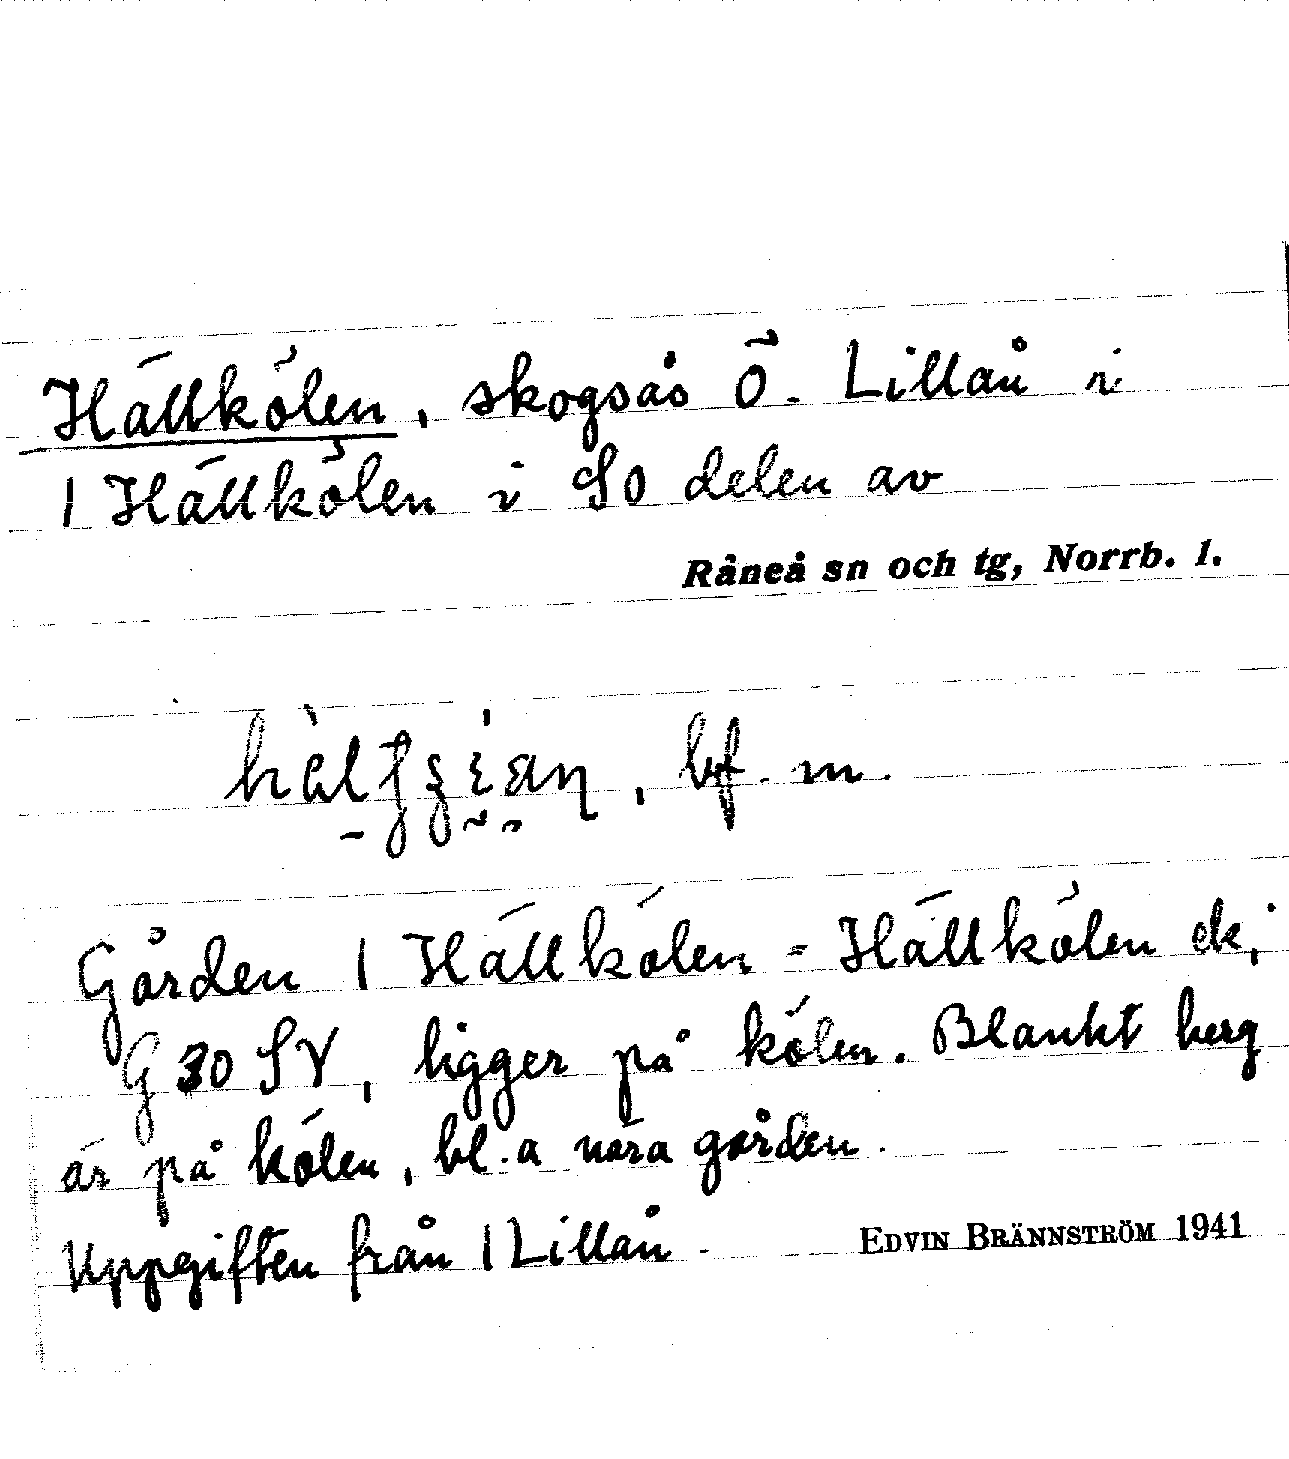 Hällkölen, skogsås Ö. Lillån i
1 Hällkölen i SO delen av
Råneå sn och tg, Norrb. l.
, bf. m.
Gården 1 Hällkölen = Hällkölen ek,
G 30 SV, ligger på kölen. Blankt berg
är på kölen, bl. a nära gården.
Uppgiften från 1 Lillån.
EDVIN BRÄNNSTRÖM 1941